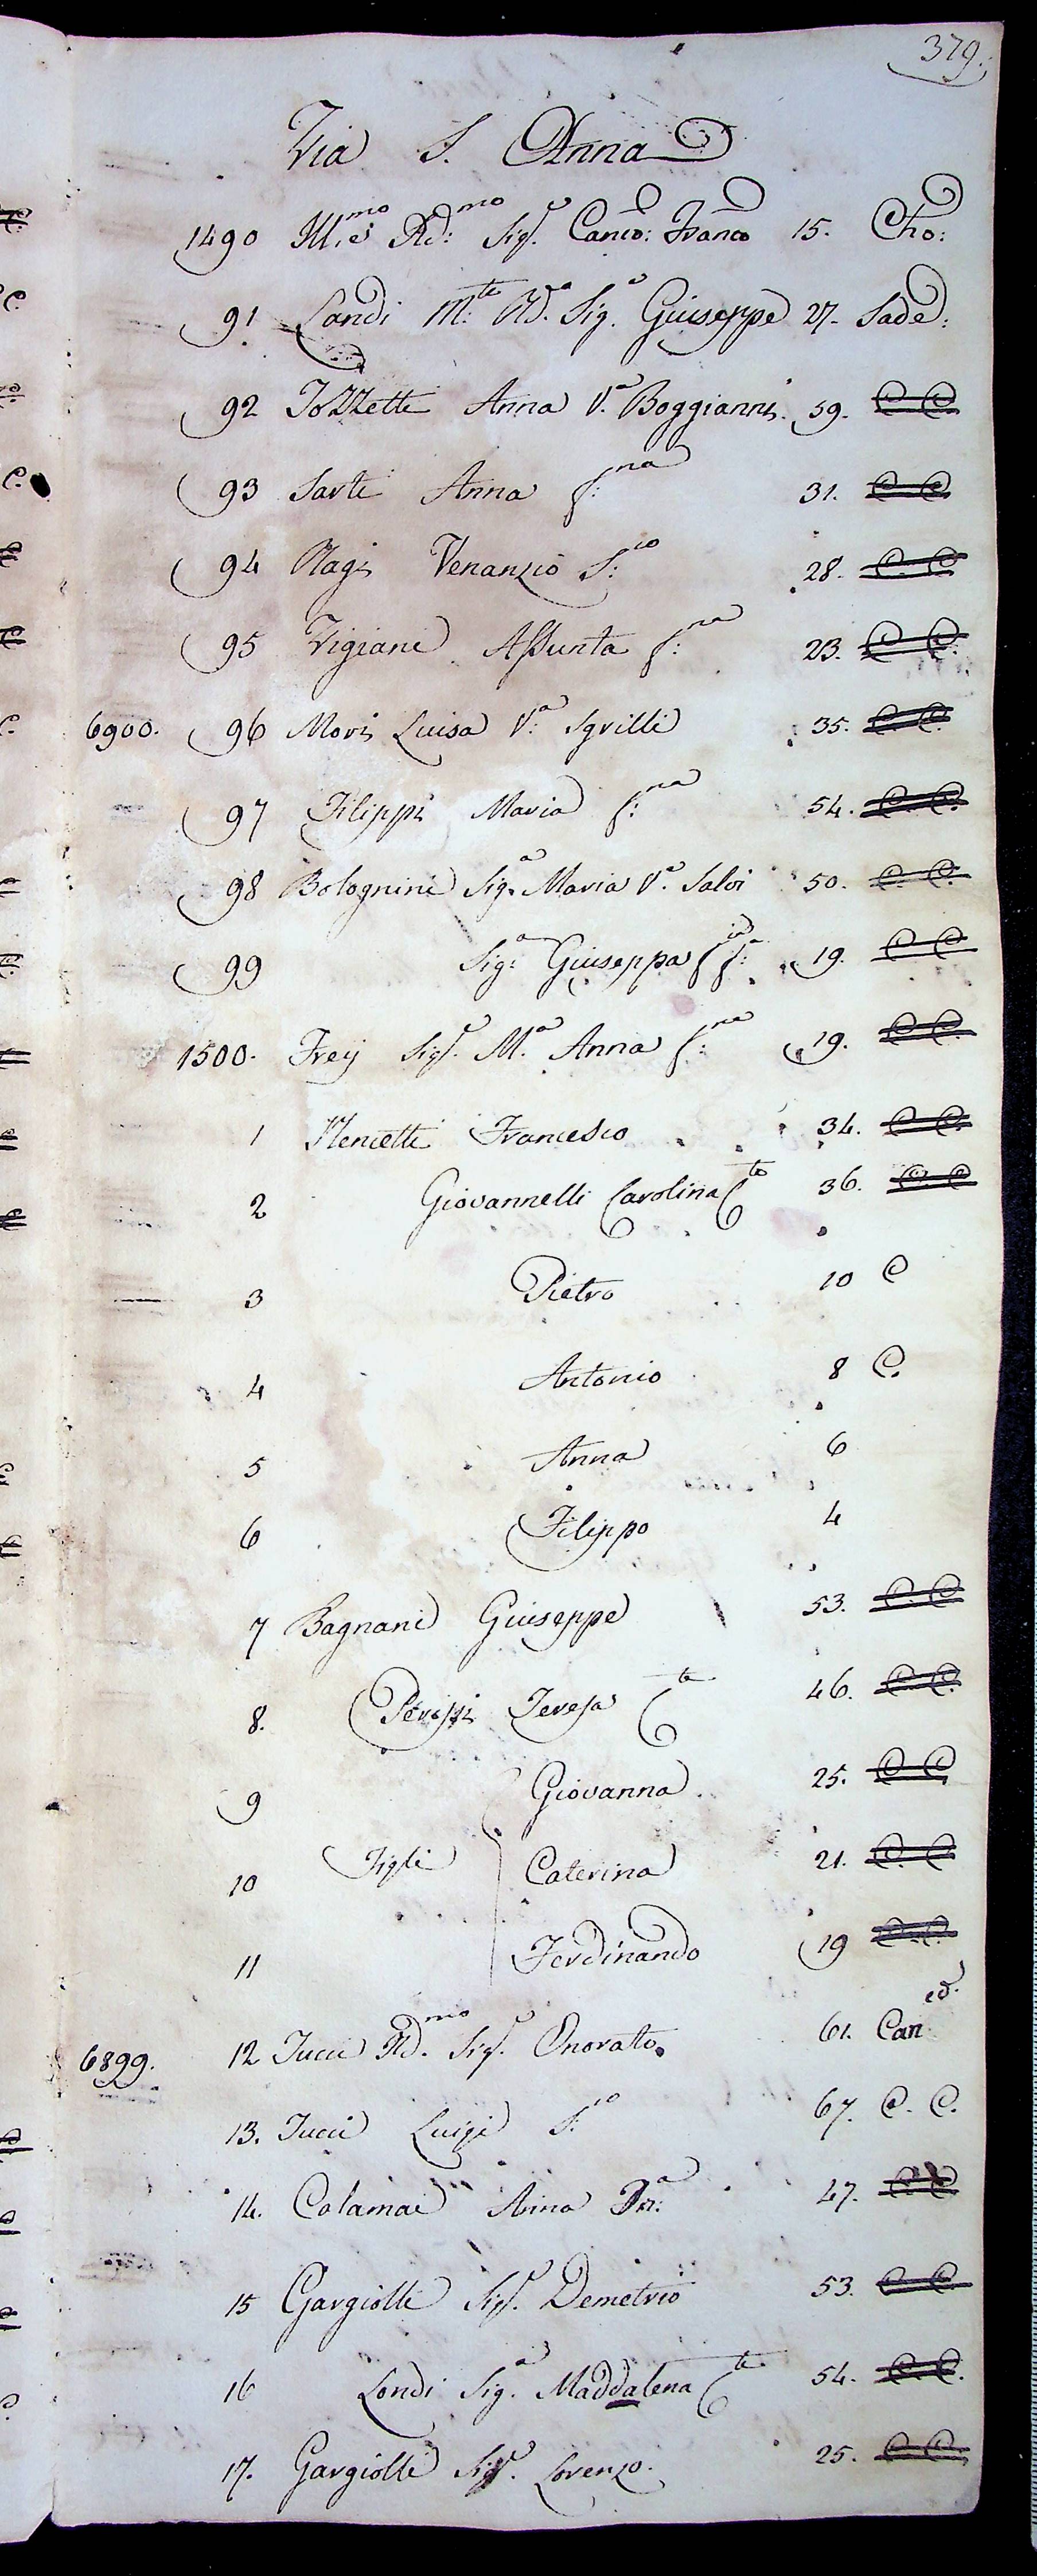 379.
Via S. Anna
1490 Ill.e Rd:mo Sigr. Canco: Franco 15. Cho:
91 Landi M:te Rd.o Sig. Giuseppe 27. Sade:
92 Tozzetti Anna V.a Boggianni. 59. C C
93 Sarti Anna f:na 31. C C
94 Magi Venanzio S:io 28. C. C
95 Vigiani Assunta f:na 23. C C.
6900. 96 Mori Luisa V.a Sgrilli 35. C. C.
97 Filippi Maria f:na 54. C. C.
98 Bolognini Sig.a Maria V.a Salvi 50. C. C.
99 Sig:a Giuseppa 19. C C
1500. Frey Sigr. M.a Anna f:na 19. C C.
1 Mencetti Francesco 34. C C.
2 Giovannelli Carolina Cte 36. C. C
3 Pietro 10 C
4 Antonio 8 C.
5 Anna 6
6 Filippo 4
7 Bagnani Giuseppe 53. C. C
8. Teresa Cte 46. C C.
9 Giovanna 25. C C
10 Figli Caterina 21. C. C
11 Ferdinando 19 C. C.
6899. 12 Tucci Rd.mo Sigr. Onorato. 61. Can.ed.
13. Tucci Luigi S:io 67. C. C.
14. Calamai Anna 47. C C
15 Gargiolli Sigr. Demetrio 53. C C
16 Londi Sig.a Maddalena Cte 54. C. C.
17. Gargiolli Sigr. Lorenzo. 25. C C.